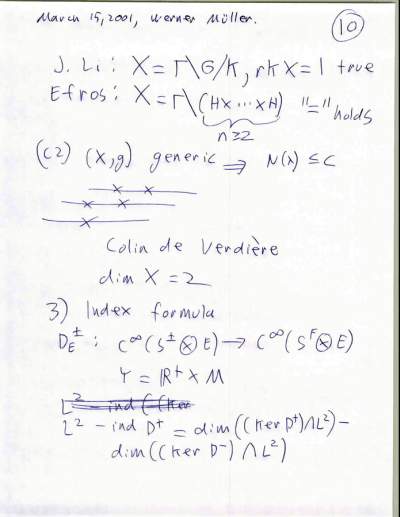 March 15, 2001, Werner Müller.
10
J. Li: X = Γ\G/K, rk X = 1 true
Efros: X = Γ\(H×...×H) "=" holds
n≥2
(C2) (X,g) generic ⇒ N(λ) ≤ C
Colin de Verdière
dim X = 2
3) Index formula
D_E^±: C^∞(S^± ⊗ E) → C^∞(S^∓ ⊗ E)
Y = ℝ^+ × M
L² - ind ((Ker
L² - ind D^+ = dim((Ker D^+) ∩ L²) -
dim((Ker D^-) ∩ L²)